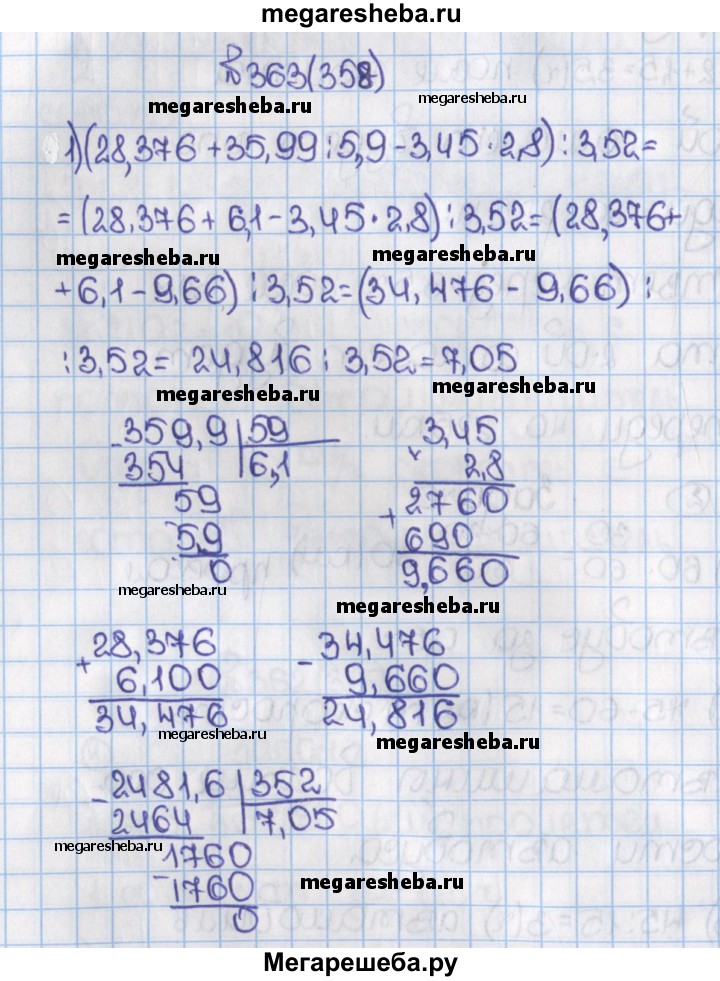 megaresheba.ru
№363(358)
megaresheba.ru megaresheba.ru
1)(28,376+35,99:5,9-3,45·2,8):3,52=
=(28,376+6,1-3,45·2,8):3,52=(28,376+
megaresheba.ru megaresheba.ru
+6,1-9,66):3,52=(34,476-9,66):
:3,52=24,816:3,52=7,05
megaresheba.ru megaresheba.ru
-359,9 59
354 6,1
59
-59
0
3,45
×2,8
+2760
690
9,660
megaresheba.ru megaresheba.ru
28,376
+6,100
34,476
-34,476
9,660
24,816
megaresheba.ru megaresheba.ru
-2481,6 352
2464 7,05
1760
-1760
0
megaresheba.ru megaresheba.ru
Мегарешеба.ру